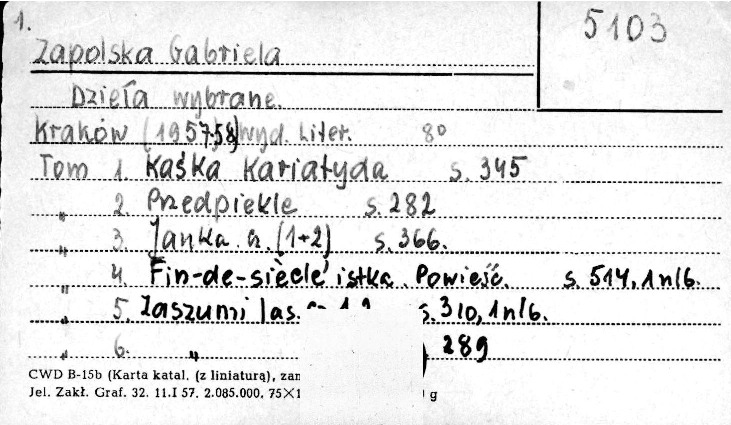 1.
5103
Zapolska Gabriela
Dzieła wybrane.
Kraków (1957-58) wyd. Liter. 8o
Tom 1. Kaśka Kariatyda s. 345
„ 2. Przedpiekle s. 282
„ 3. Janka cz. (1+2) s. 366.
„ 4. Fin-de-siècle'istka. Powieść. s. 514, 1 nlb.
„ 5. Zaszumi las. s. 310, 1 nlb.
„ 6. „ 289
CWD B-15b (Karta katal. (z liniaturą),
Jel. Zakł. Graf. 32. 11.I 57. 2.085.000. 75×1 g